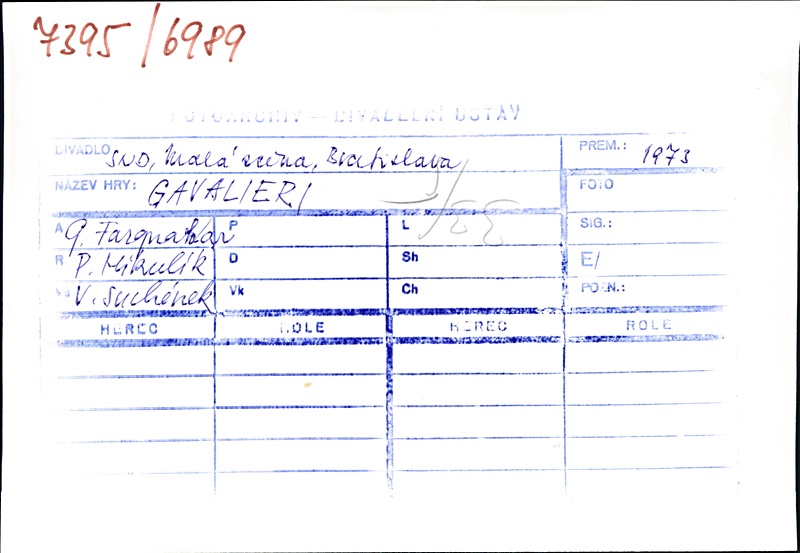 7395/6989
FOTOARCHIV — DIVADELNÍ ÚSTAV
DIVADLO SND, Malá scéna, Bratislava
PREM.: 1973
NÁZEV HRY: GAVALIERI
FOTO
A G. Farquahar
P
L
SIG.:
R P. Mikulík
D
Sh
E/
Vs V. Suchánek
Vk
Ch
POZN.:
HEREC ROLE HEREC ROLE